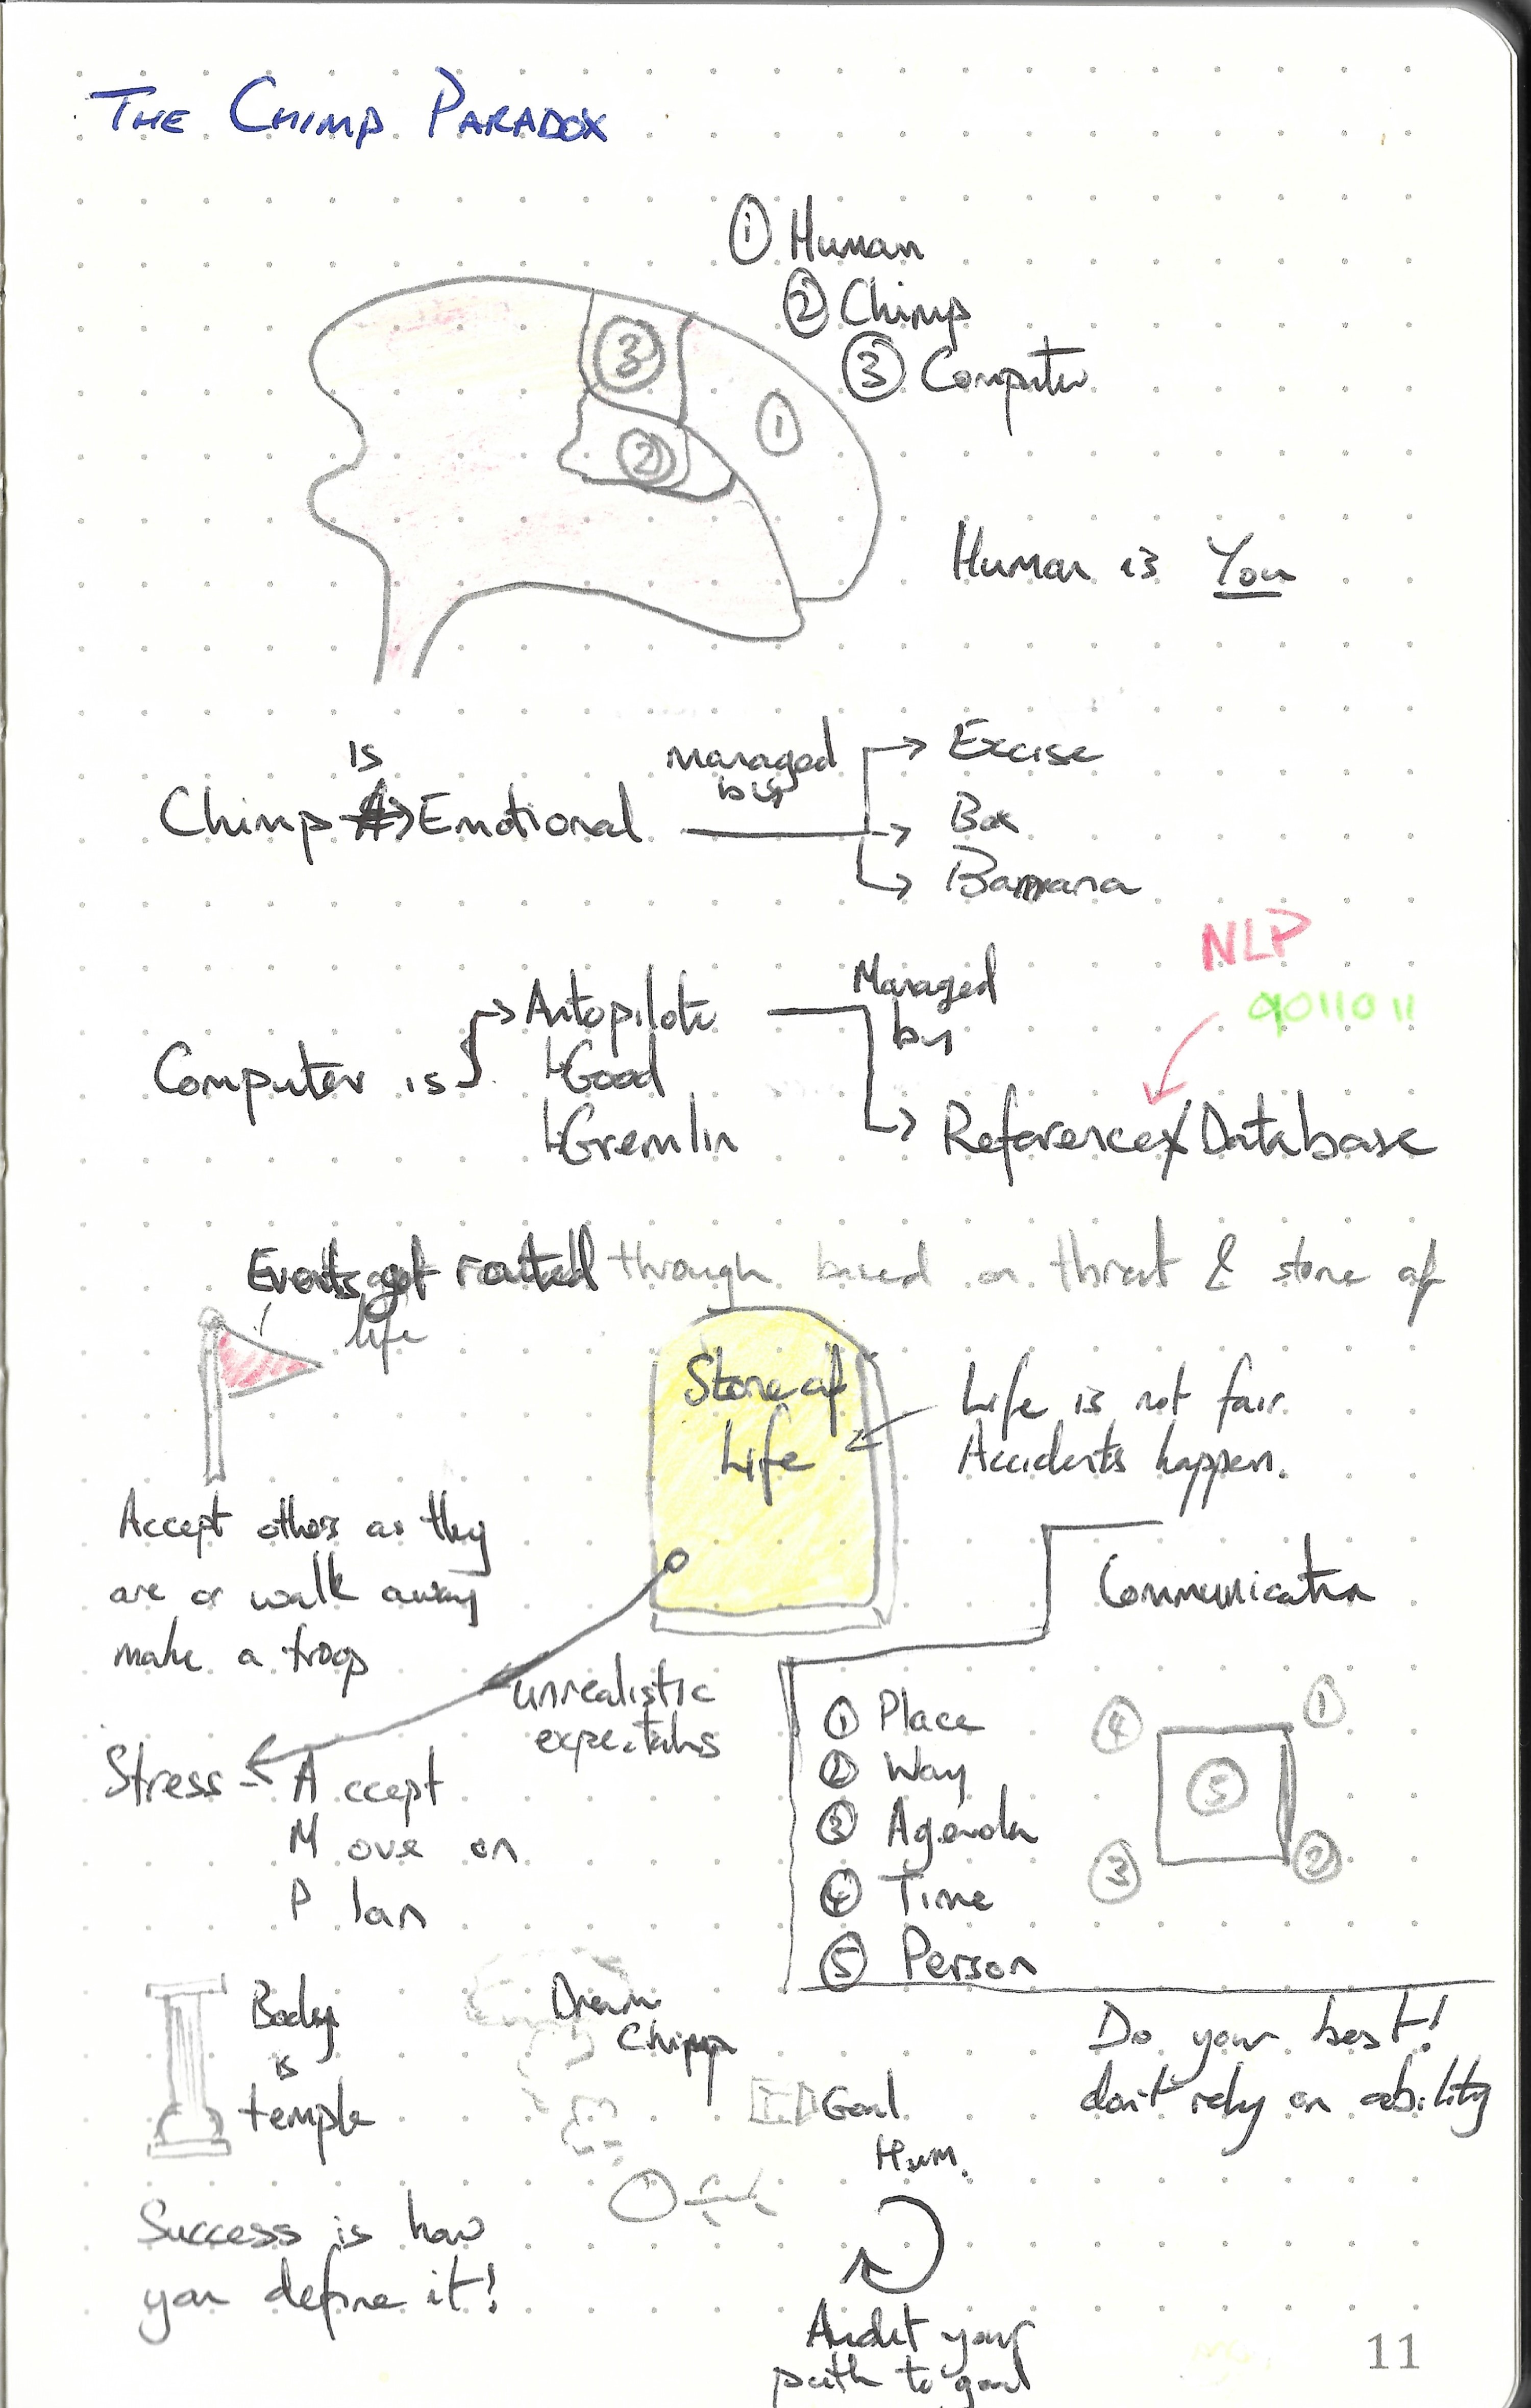 THE CHIMP PARADOX
① Human
② Chimp
③ Computer
③
①
②
Human is You
is
Chimp Emotional
managed
by
Excise
Box
Bannana
NLP
Managed
by
Autopilots
Good
Gremlin
Computer is
Reference/Database
Events get routed through based on threat & stone of
life
Stone of
Life
Life is not fair
Accidents happen.
Accept others as they
are or walk away
make a troop
unrealistic
Communication
Stress
Accept
Move on
Plan
① Place
② Way
③ Agenda
④ Time
⑤ Person
④
①
⑤
③
②
Body
is
temple
Dream
Chimp
Goal
Hum.
Do your best!
don't rely on ability
Success is how
you define it!
Audit your
path to goal
11